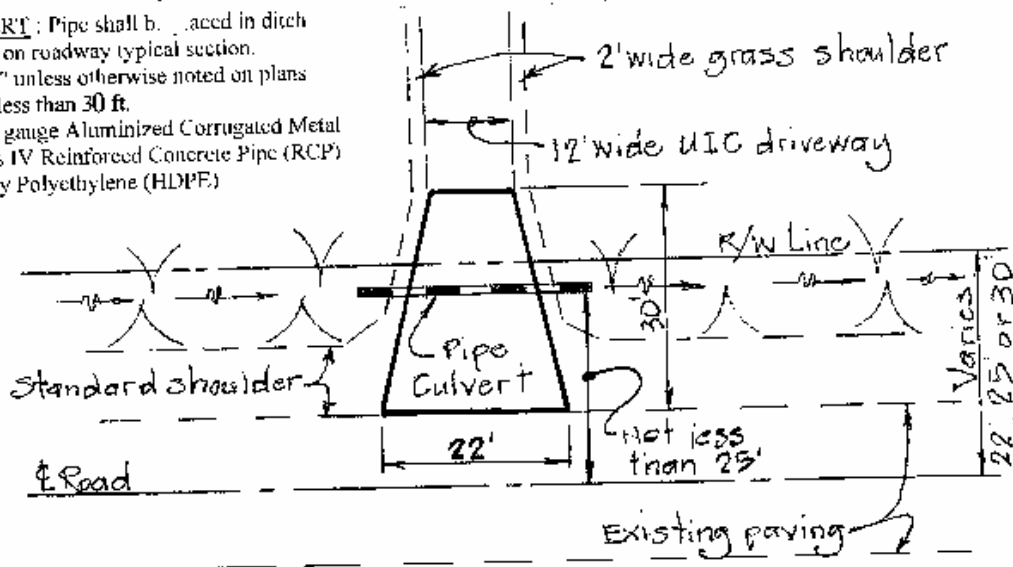 RT : Pipe shall b. .aced in ditch
on roadway typical section.
unless otherwise noted on plans
less than 30 ft.
gauge Aluminized Corrugated Metal
IV Reinforced Concrete Pipe (RCP)
y Polyethylene (HDPE)
2' wide grass shoulder
12' wide UIC driveway
R/W Line
30'
Varies
22', 25' or 30
Pipe
Culvert
Standard shoulder
Not less
than 25'
22'
℄ Road
Existing paving